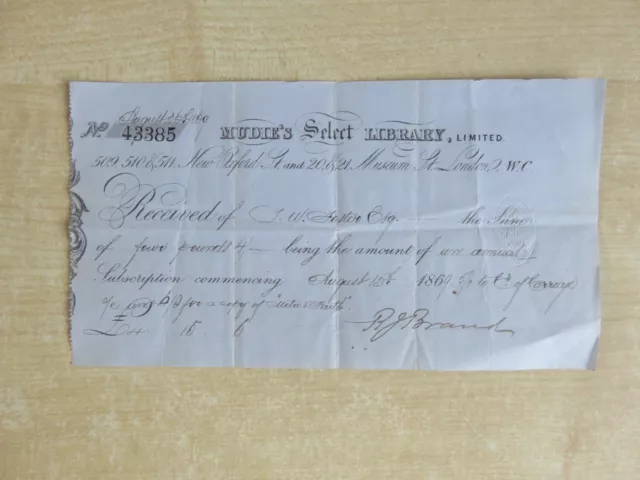 August
No. 43385 MUDIE'S Select LIBRARY, LIMITED.
509, 510 & 511, New Oxford St. and 20 & 21, Museum St. London, W.C
Received of J. W. Esq. the Sum
of four pounds 4 being the amount of an annual
Subscription commencing August 1869 to of
for a copy of
£4 15 6 R J Brand